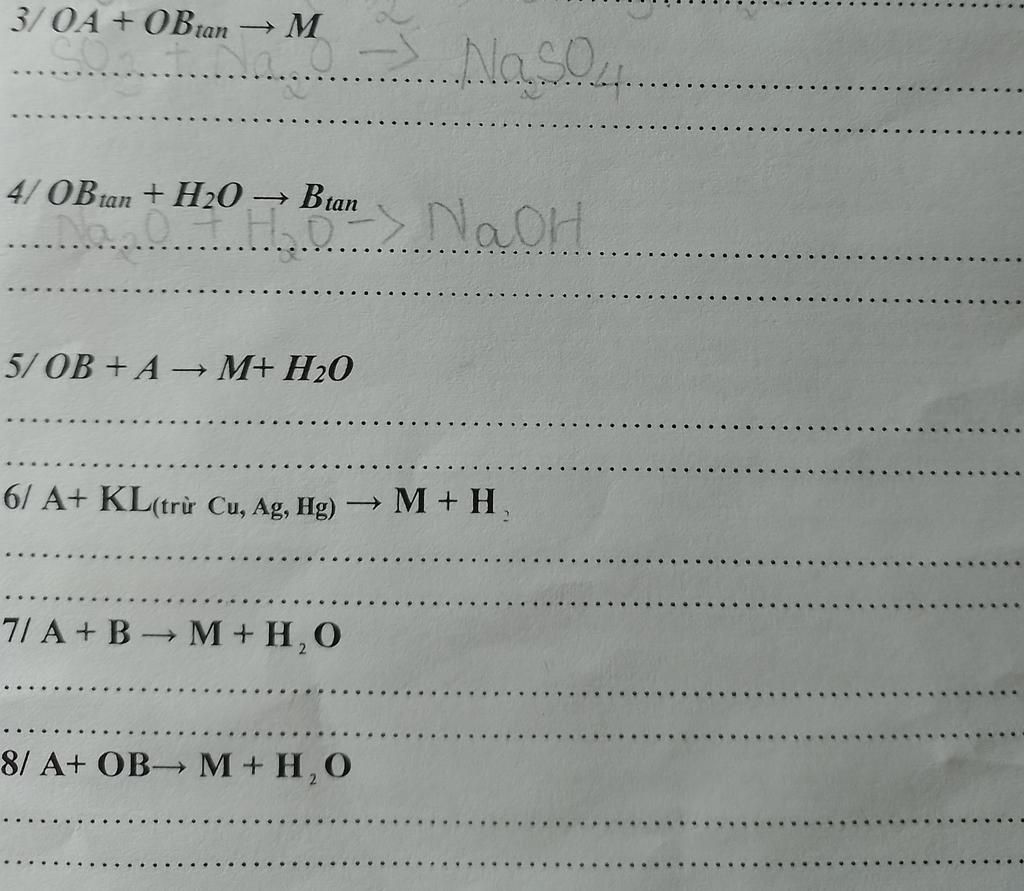 3/ OA + OBtan → M
SO3 + Na2O → Na2SO4
4/ OBtan + H2O → Btan
Na2O + H2O → NaOH
5/ OB + A → M+ H2O
6/ A+ KL(trừ Cu, Ag, Hg) → M + H2
7/ A + B → M + H2O
8/ A+ OB→ M + H2O